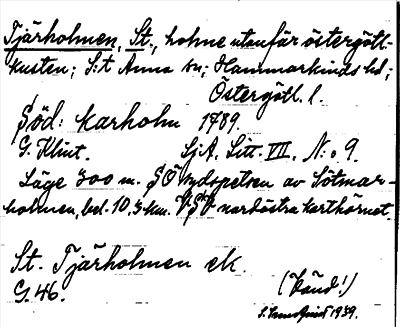 Tjärholmen, St., holme utanför östergötl-
kusten; S:t Anna sn; Hammarkinds hd;
Östergötl. l.
Söd: Karholm 1789.
G. Klint. SjA. Litt. VII, N:o 9.
Läge 300 m. SÖ sydspetsen av Lötmar-
holmen, bel. 10,5 km. VSV nordöstra karthörnet.
St. Tjärholmen ek.
G. 46. (Vänd!)
1939.